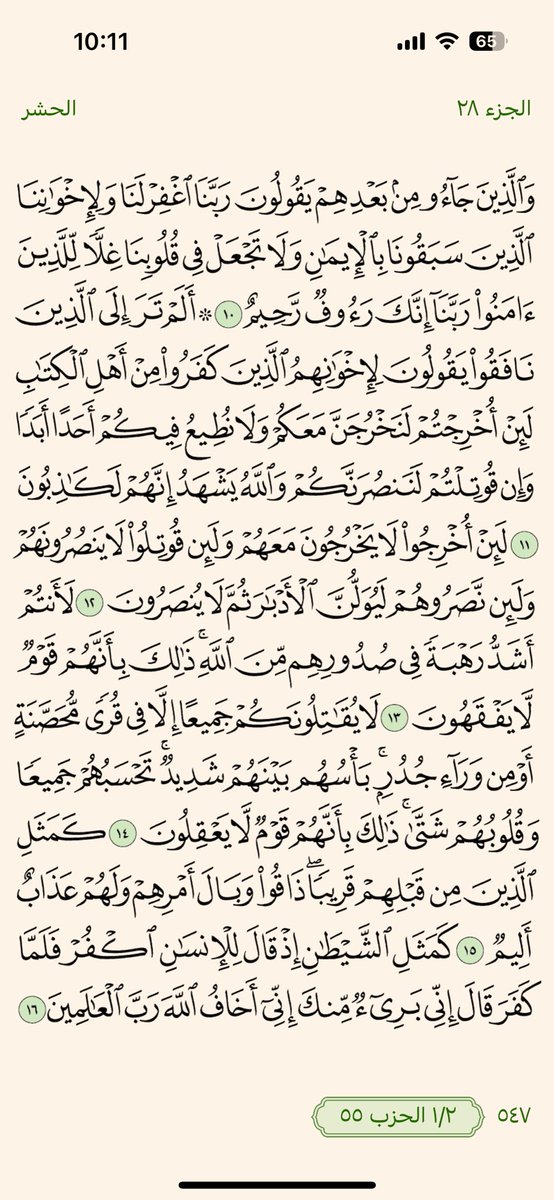 10:11
65
الجزء ٢٨
الحشر
وَٱلَّذِينَ جَآءُو مِنۢ بَعْدِهِمْ يَقُولُونَ رَبَّنَا ٱغْفِرْ لَنَا وَلِإِخْوَٰنِنَا
ٱلَّذِينَ سَبَقُونَا بِٱلْإِيمَٰنِ وَلَا تَجْعَلْ فِى قُلُوبِنَا غِلًّا لِّلَّذِينَ
ءَامَنُوا۟ رَبَّنَآ إِنَّكَ رَءُوفٌ رَّحِيمٌ ١٠ ۞ أَلَمْ تَرَ إِلَى ٱلَّذِينَ
نَافَقُوا۟ يَقُولُونَ لِإِخْوَٰنِهِمُ ٱلَّذِينَ كَفَرُوا۟ مِنْ أَهْلِ ٱلْكِتَٰبِ
لَئِنْ أُخْرِجْتُمْ لَنَخْرُجَنَّ مَعَكُمْ وَلَا نُطِيعُ فِيكُمْ أَحَدًا أَبَدًا
وَإِن قُوتِلْتُمْ لَنَنصُرَنَّكُمْ وَٱللَّهُ يَشْهَدُ إِنَّهُمْ لَكَٰذِبُونَ
١١ لَئِنْ أُخْرِجُوا۟ لَا يَخْرُجُونَ مَعَهُمْ وَلَئِن قُوتِلُوا۟ لَا يَنصُرُونَهُمْ
وَلَئِن نَّصَرُوهُمْ لَيُوَلُّنَّ ٱلْأَدْبَٰرَ ثُمَّ لَا يُنصَرُونَ ١٢ لَأَنتُمْ
أَشَدُّ رَهْبَةً فِى صُدُورِهِم مِّنَ ٱللَّهِ ۚ ذَٰلِكَ بِأَنَّهُمْ قَوْمٌ
لَّا يَفْقَهُونَ ١٣ لَا يُقَٰتِلُونَكُمْ جَمِيعًا إِلَّا فِى قُرًى مُّحَصَّنَةٍ
أَوْ مِن وَرَآءِ جُدُرٍۭ ۚ بَأْسُهُم بَيْنَهُمْ شَدِيدٌ ۚ تَحْسَبُهُمْ جَمِيعًا
وَقُلُوبُهُمْ شَتَّىٰ ۚ ذَٰلِكَ بِأَنَّهُمْ قَوْمٌ لَّا يَعْقِلُونَ ١٤ كَمَثَلِ
ٱلَّذِينَ مِن قَبْلِهِمْ قَرِيبًا ۖ ذَاقُوا۟ وَبَالَ أَمْرِهِمْ وَلَهُمْ عَذَابٌ
أَلِيمٌ ١٥ كَمَثَلِ ٱلشَّيْطَٰنِ إِذْ قَالَ لِلْإِنسَٰنِ ٱكْفُرْ فَلَمَّا
كَفَرَ قَالَ إِنِّى بَرِىٓءٌ مِّنكَ إِنِّىٓ أَخَافُ ٱللَّهَ رَبَّ ٱلْعَٰلَمِينَ ١٦
٥٤٧
١/٢ الحزب ٥٥